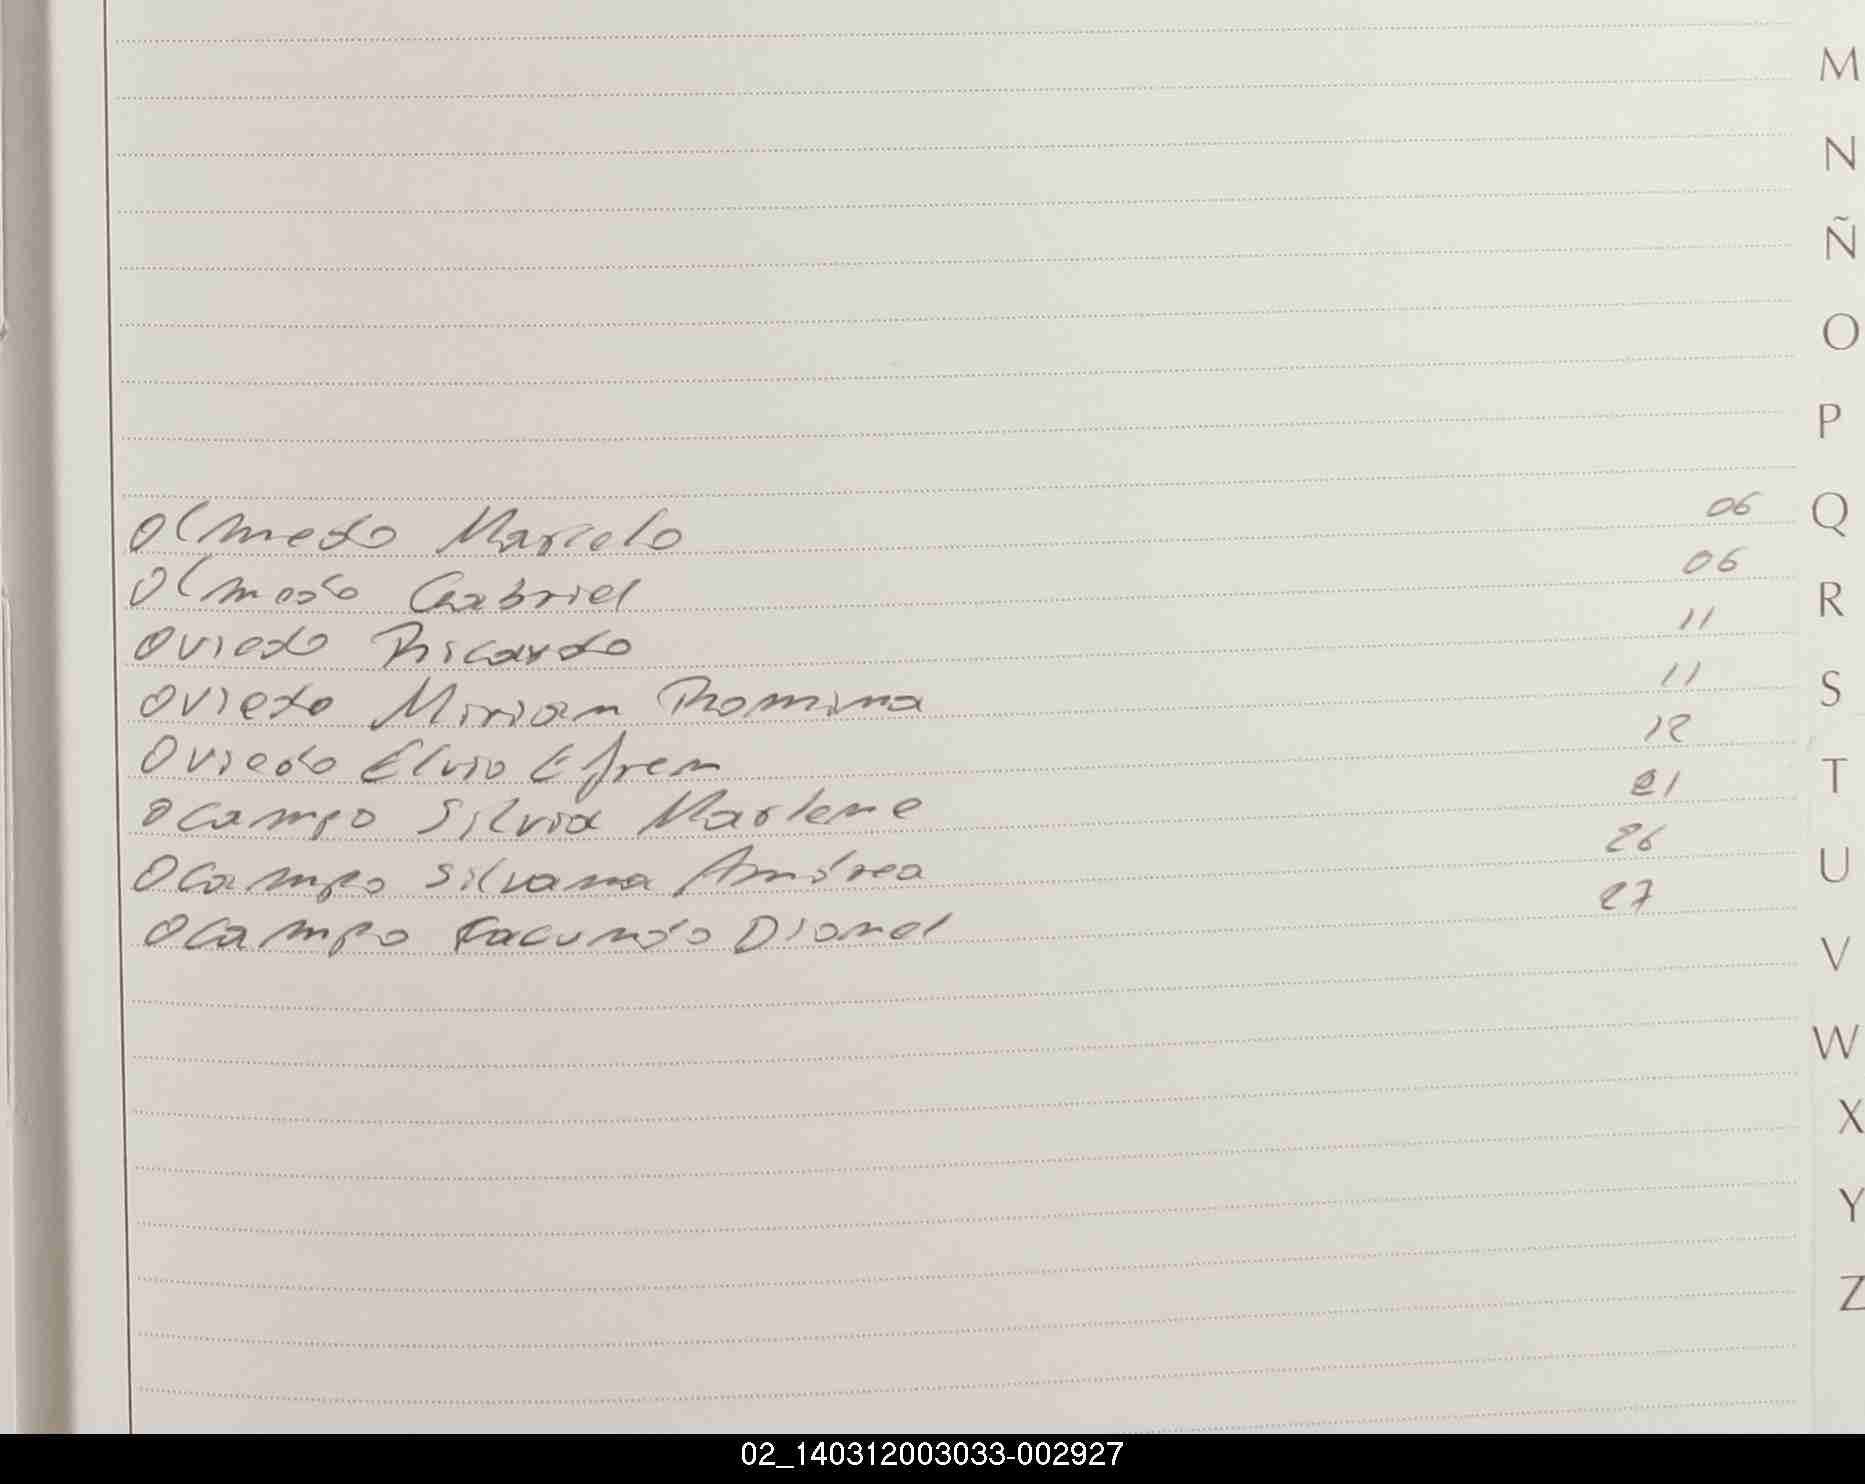 Olmedo Marcelo 06
Olmedo Gabriel 06
Oviedo Ricardo 11
Oviedo Miriam Romina 11
Oviedo Elvio Efren 12
Ocampo Silvia Marlene 21
Ocampo Silvana Andrea 26
Ocampo Facundo Dionel 27
M
N
Ñ
O
P
Q
R
S
T
U
V
W
X
Y
Z
02_140312003033-002927